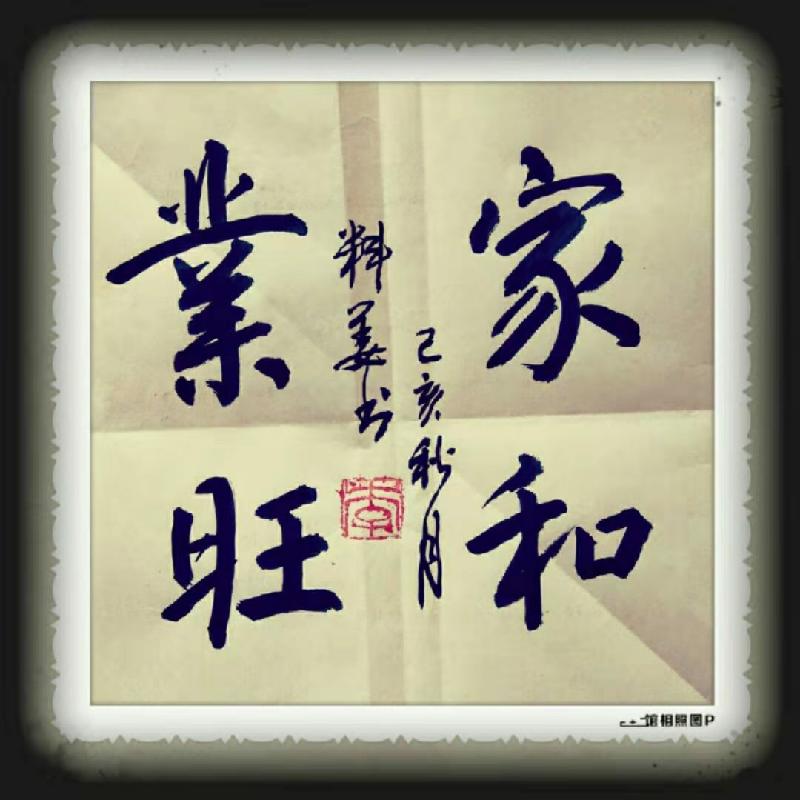 家和
業旺
己亥秋月
料姜书
馆相照图P